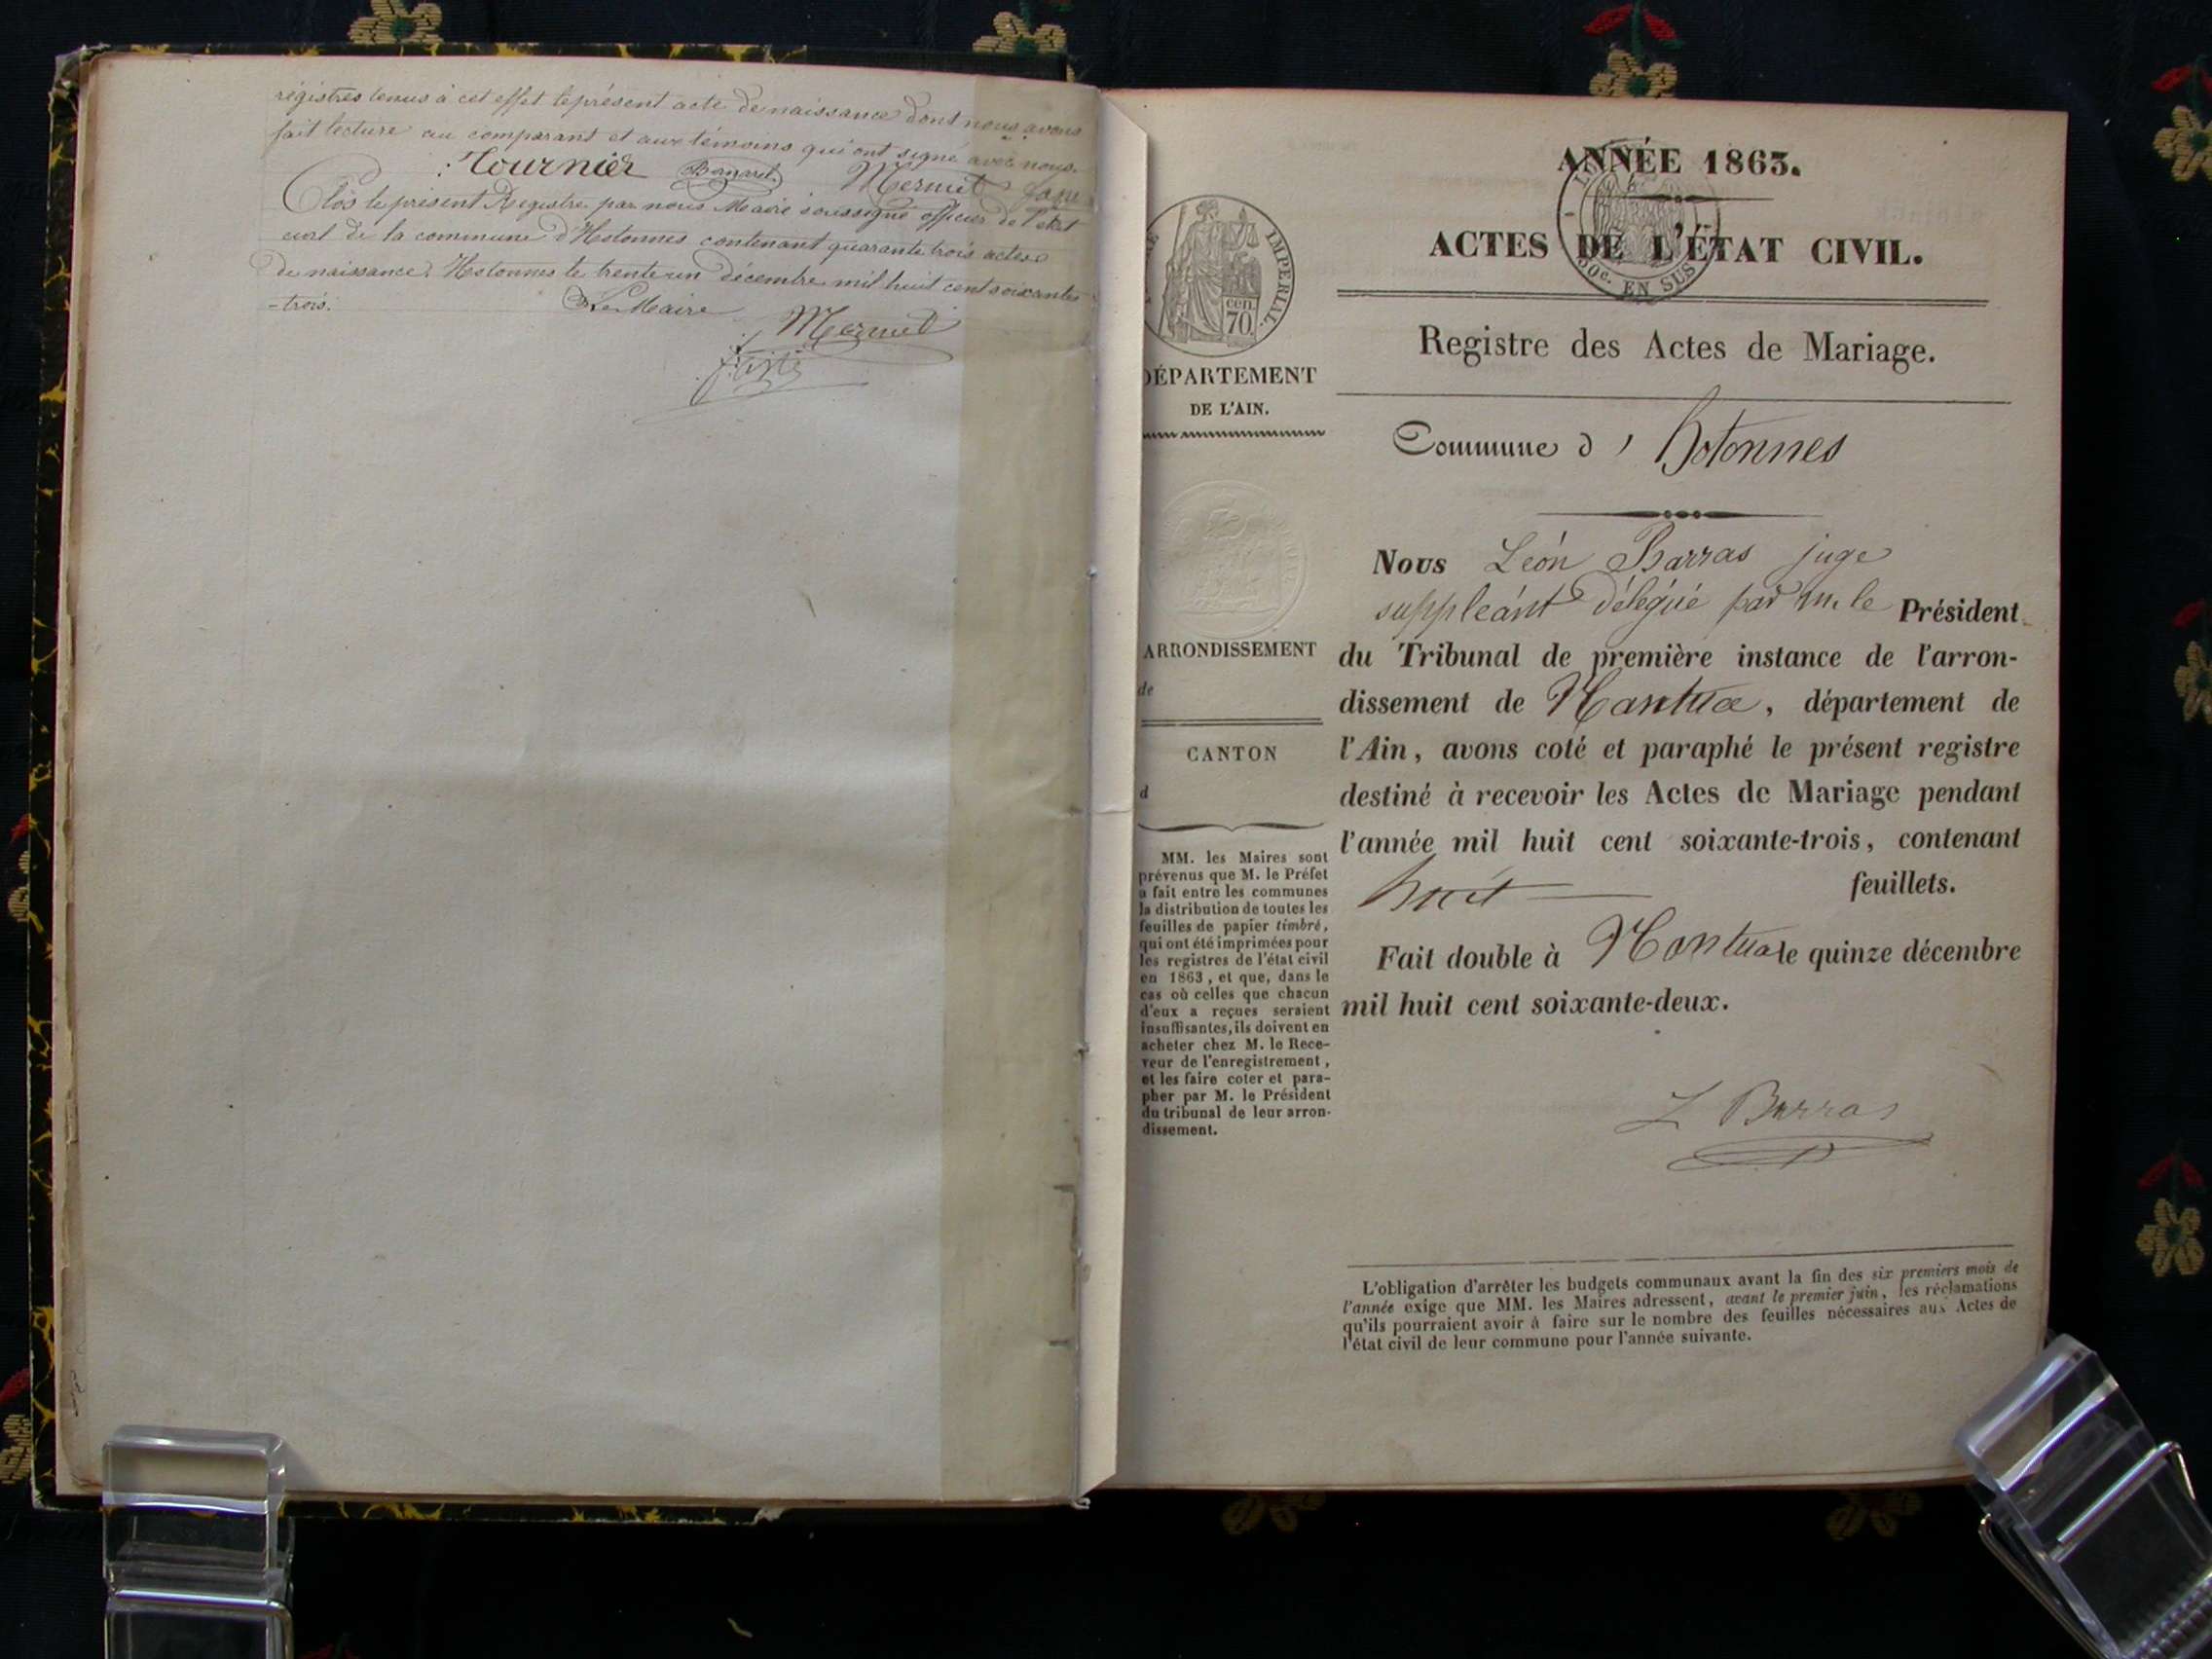 régistres tenus à cet effet le présent acte de naissance dont nous avons
fait lecture au comparant et aux témoins qui ont signé avec nous.
Tournier Mermet
Clos le présent Registre par nous Maire soussigné officier de l'état
civil de la commune d'Hotonnes contenant quarante trois actes
de naissance. Hotonnes le trente un décembre mil huit cent soixante
-trois. Le Maire
Mermet
ANNÉE 1863.
ACTES DE L'ÉTAT CIVIL.
50c. EN SUS
Registre des Actes de Mariage.
Commune d' hotonnes
IMPERIAL.
cen
70
DÉPARTEMENT
DE L'AIN.
ARRONDISSEMENT
de
CANTON
d
MM. les Maires sont
prévenus que M. le Préfet
a fait entre les communes
la distribution de toutes les
feuilles de papier timbré,
qui ont été imprimées pour
les registres de l'état civil
en 1863, et que, dans le
cas où celles que chacun
d'eux a reçues seraient
insuffisantes, ils doivent en
acheter chez M. le Rece-
veur de l'enregistrement,
et les faire coter et para-
pher par M. le Président
du tribunal de leur arron-
dissement.
Nous Léon Barras juge
suppléant délégué par m. le Président
du Tribunal de première instance de l'arron-
dissement de Nantua, département de
l'Ain, avons coté et paraphé le présent registre
destiné à recevoir les Actes de Mariage pendant
l'année mil huit cent soixante-trois, contenant
huit feuillets.
Fait double à Nantua le quinze décembre
mil huit cent soixante-deux.
L Barras
L'obligation d'arrêter les budgets communaux avant la fin des six premiers mois de
l'année exige que MM. les Maires adressent, avant le premier juin, les réclamations
qu'ils pourraient avoir à faire sur le nombre des feuilles nécessaires aux Actes de
l'état civil de leur commune pour l'année suivante.